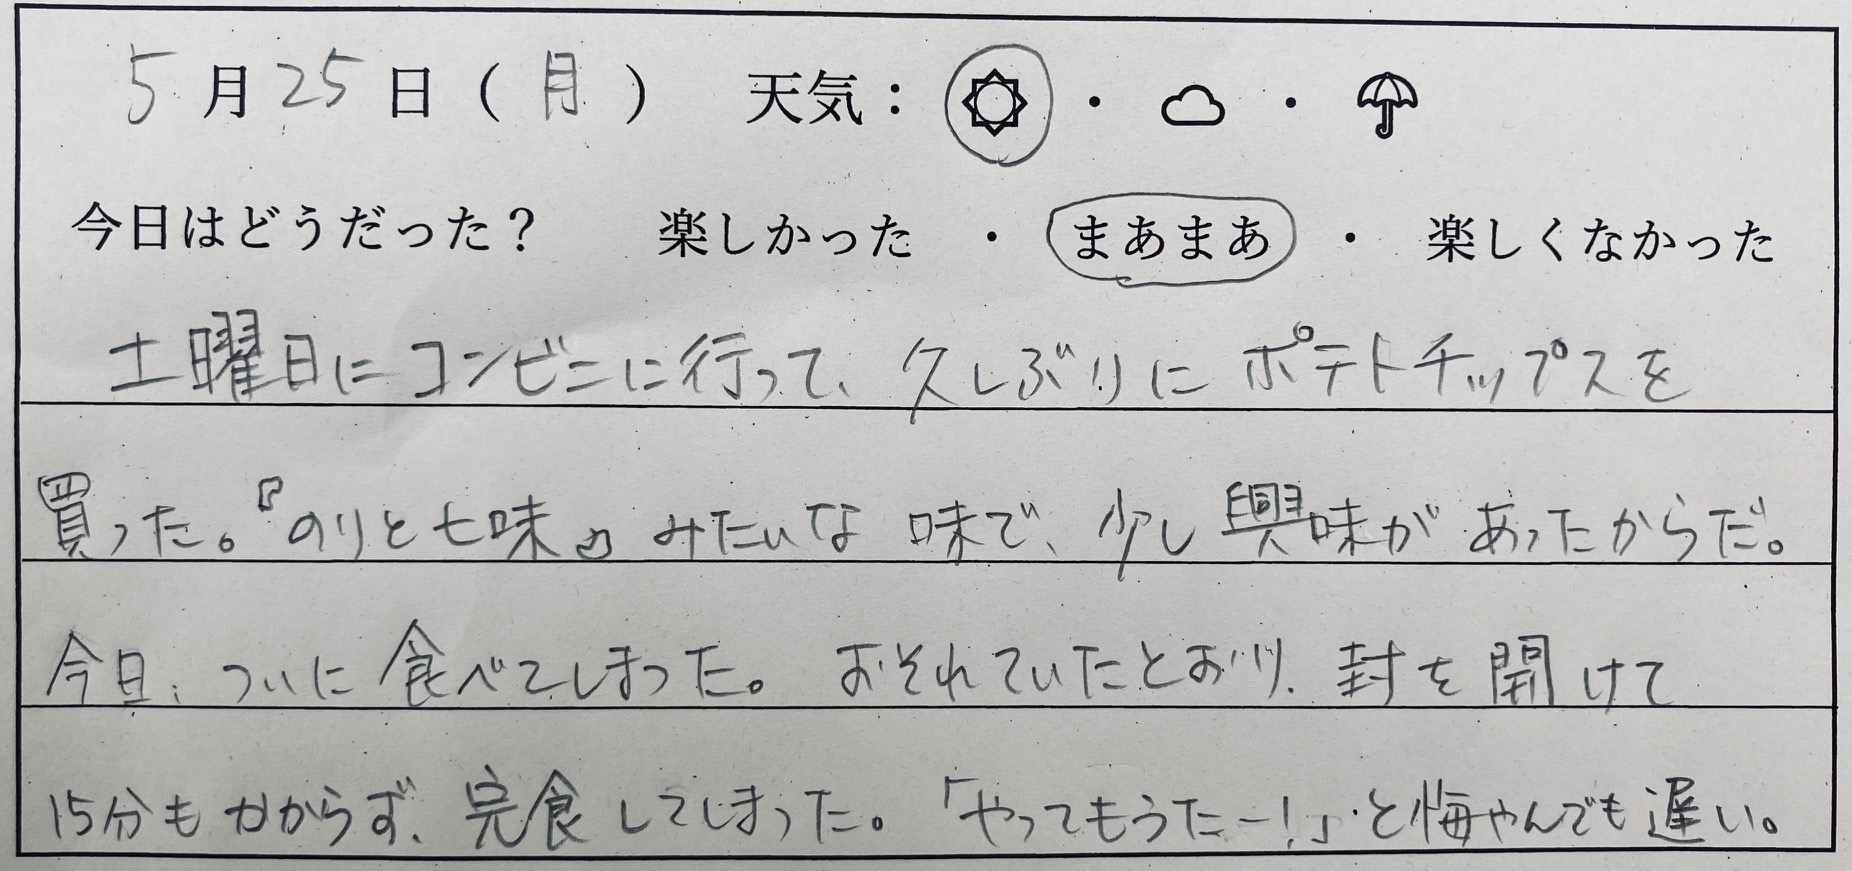 5月25日(月) 天気：・・
今日はどうだった？ 楽しかった ・ まあまあ ・ 楽しくなかった
土曜日にコンビニに行って、久しぶりにポテトチップスを
買った。『のりと七味』みたいな味で、少し興味があったからだ。
今日、ついに食べてしまった。おそれていたとおり、封を開けて
15分もかからず、完食してしまった。「やってもうたー！」と悔やんでも遅い。